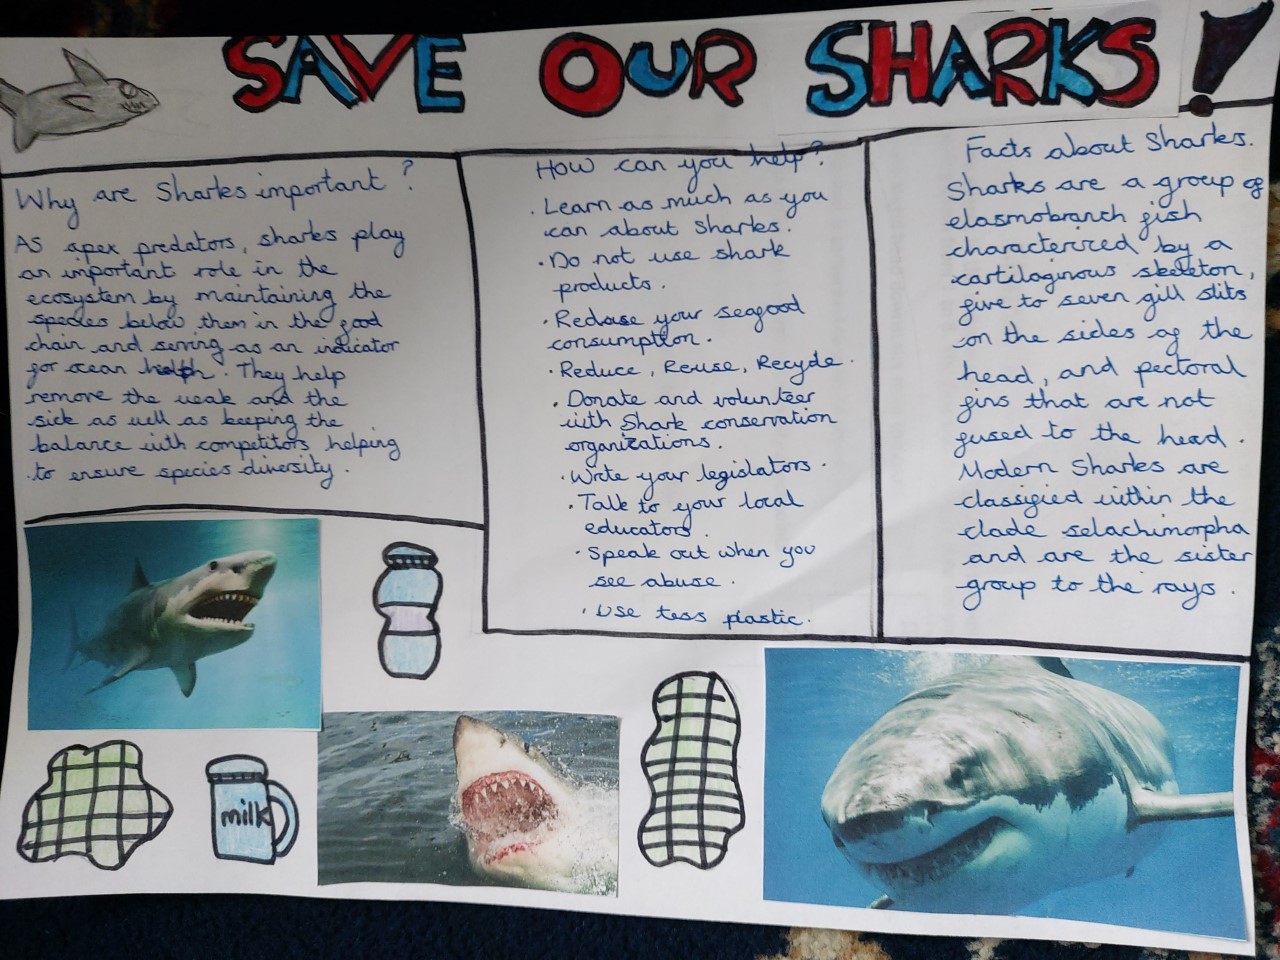 SAVE OUR SHARKS!
Why are Sharks important?
As apex predators, sharks play
an important role in the
ecosystem by maintaining the
species below them in the food
chain and serving as an indicator
for ocean health. They help
remove the weak and the
sick as well as keeping the
balance with competitors helping
to ensure species diversity.
How can you help?
· Learn as much as you
can about Sharks.
· Do not use shark
products.
· Reduse your seafood
consumption.
· Reduce, Reuse, Recycle.
· Donate and volunteer
with Shark conservation
organizations.
· Write your legislators.
· Talk to your local
educators.
· Speak out when you
see abuse.
· Use less plastic.
Facts about Sharks.
Sharks are a group of
elasmobranch fish
characterized by a
cartilaginous skeleton,
five to seven gill slits
on the sides of the
head, and pectoral
fins that are not
fused to the head.
Modern Sharks are
classified within the
clade selachimorpha
and are the sister
group to the rays.
milk